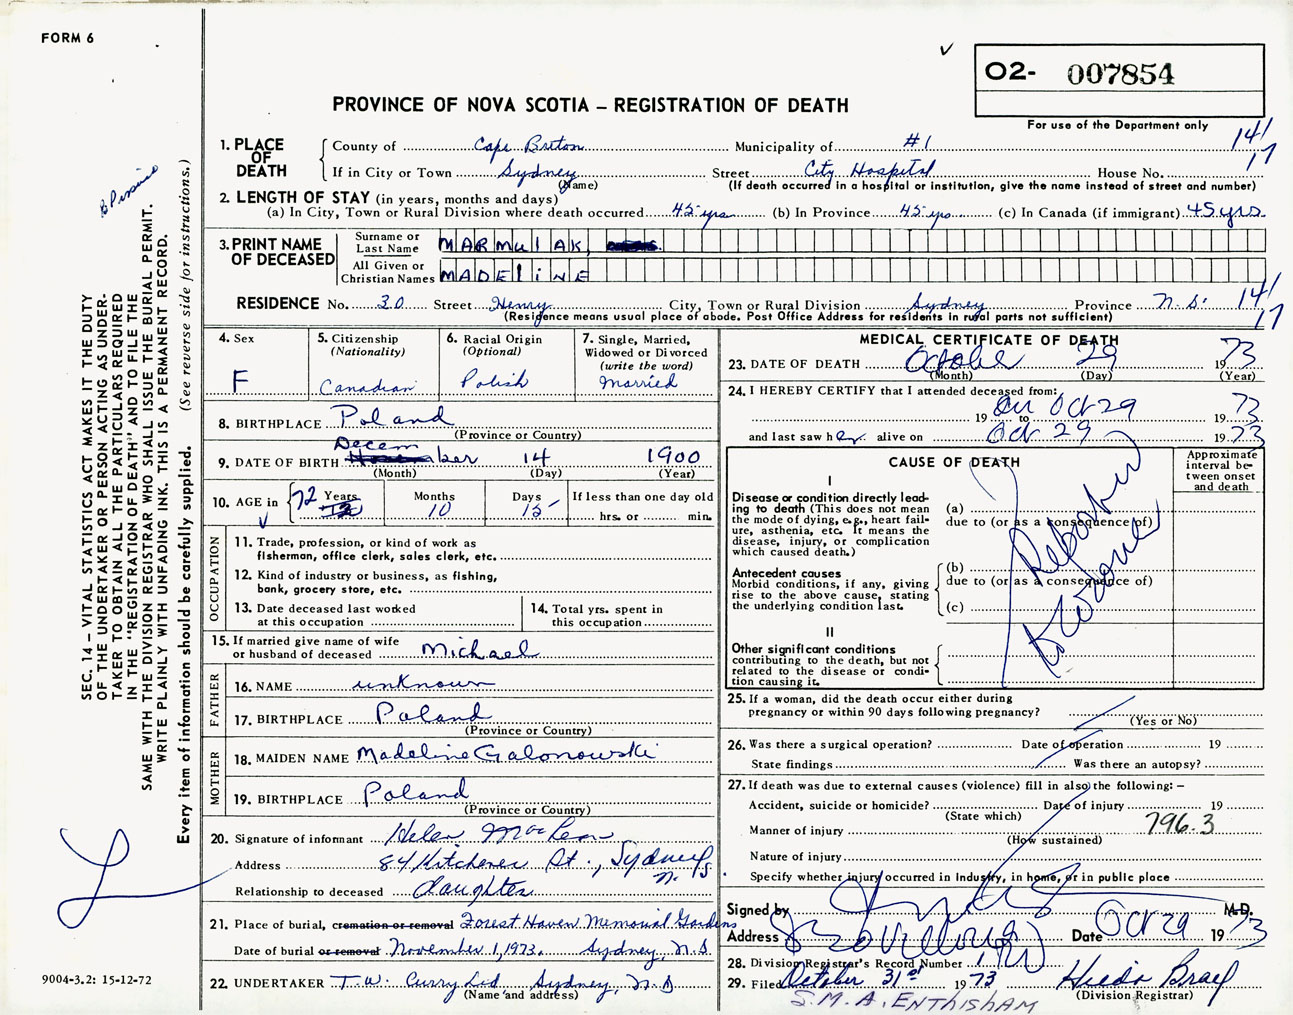 FORM 6
O2- 007854
PROVINCE OF NOVA SCOTIA – REGISTRATION OF DEATH
For use of the Department only
1. PLACE OF DEATH
County of Cape Breton Municipality of #1 14/
If in City or Town Sydney Street City Hospital House No. 17
(Name) (If death occurred in a hospital or institution, give the name instead of street and number)
2. LENGTH OF STAY (in years, months and days)
(a) In City, Town or Rural Division where death occurred 45 yrs (b) In Province 45 yrs (c) In Canada (if immigrant) 45 yrs.
3. PRINT NAME OF DECEASED
Surname or Last Name MARMULAK,
All Given or Christian Names MADELINE
RESIDENCE No. 30 Street Henry City, Town or Rural Division Sydney Province N.S. 14/
(Residence means usual place of abode. Post Office Address for residents in rural parts not sufficient) 17
4. Sex F
5. Citizenship (Nationality) Canadian
6. Racial Origin (Optional) Polish
7. Single, Married, Widowed or Divorced (write the word) Married
8. BIRTHPLACE Poland
(Province or Country)
9. DATE OF BIRTH December 14 1900
(Month) (Day) (Year)
10. AGE in 72 Years Months 10 Days 15 If less than one day old
hrs. or min.
OCCUPATION
11. Trade, profession, or kind of work as fisherman, office clerk, sales clerk, etc.
12. Kind of industry or business, as fishing, bank, grocery store, etc.
13. Date deceased last worked at this occupation
14. Total yrs. spent in this occupation
15. If married give name of wife or husband of deceased Michael
FATHER
16. NAME unknown
17. BIRTHPLACE Poland
(Province or Country)
MOTHER
18. MAIDEN NAME Madeline Galonowski
19. BIRTHPLACE Poland
(Province or Country)
20. Signature of informant Helen MacLean
Address 84 Kitchener St., Sydney N.S.
Relationship to deceased daughter
21. Place of burial, cremation or removal Forest Haven Memorial Gardens
Date of burial or removal November 1, 1973. Sydney, N.S.
22. UNDERTAKER T.W. Curry Ltd, Sydney, N.S
(Name and address)
MEDICAL CERTIFICATE OF DEATH
23. DATE OF DEATH October 29 1973
(Month) (Day) (Year)
24. I HEREBY CERTIFY that I attended deceased from:
19 to Oct 29 1973
and last saw her alive on Oct 29 1973
CAUSE OF DEATH
Approximate interval between onset and death
I
Disease or condition directly leading to death (This does not mean the mode of dying, e.g., heart failure, asthenia, etc. It means the disease, injury, or complication which caused death.)
(a)
due to (or as a consequence of)
Antecedent causes
Morbid conditions, if any, giving rise to the above cause, stating the underlying condition last.
(b)
due to (or as a consequence of)
(c)
II
Other significant conditions contributing to the death, but not related to the disease or condition causing it.
25. If a woman, did the death occur either during pregnancy or within 90 days following pregnancy?
(Yes or No)
26. Was there a surgical operation? Date of operation 19
State findings Was there an autopsy?
27. If death was due to external causes (violence) fill in also the following: –
Accident, suicide or homicide? Date of injury 19
(State which)
Manner of injury 796.3
(How sustained)
Nature of injury
Specify whether injury occurred in Industry, in home, or in public place
Signed by M.D.
Address Date Oct 29 1973
28. Division Registrar's Record Number
29. Filed October 31st 1973
(Division Registrar)
S.M.A. ENTHISHAM
SEC. 14 – VITAL STATISTICS ACT MAKES IT THE DUTY
OF THE UNDERTAKER OR PERSON ACTING AS UNDER-
TAKER TO OBTAIN ALL THE PARTICULARS REQUIRED
IN THE "REGISTRATION OF DEATH" AND TO FILE THE
SAME WITH THE DIVISION REGISTRAR WHO SHALL ISSUE THE BURIAL PERMIT.
WRITE PLAINLY WITH UNFADING INK. THIS IS A PERMANENT RECORD.
Every item of information should be carefully supplied. (See reverse side for instructions.)
9004-3.2: 15-12-72